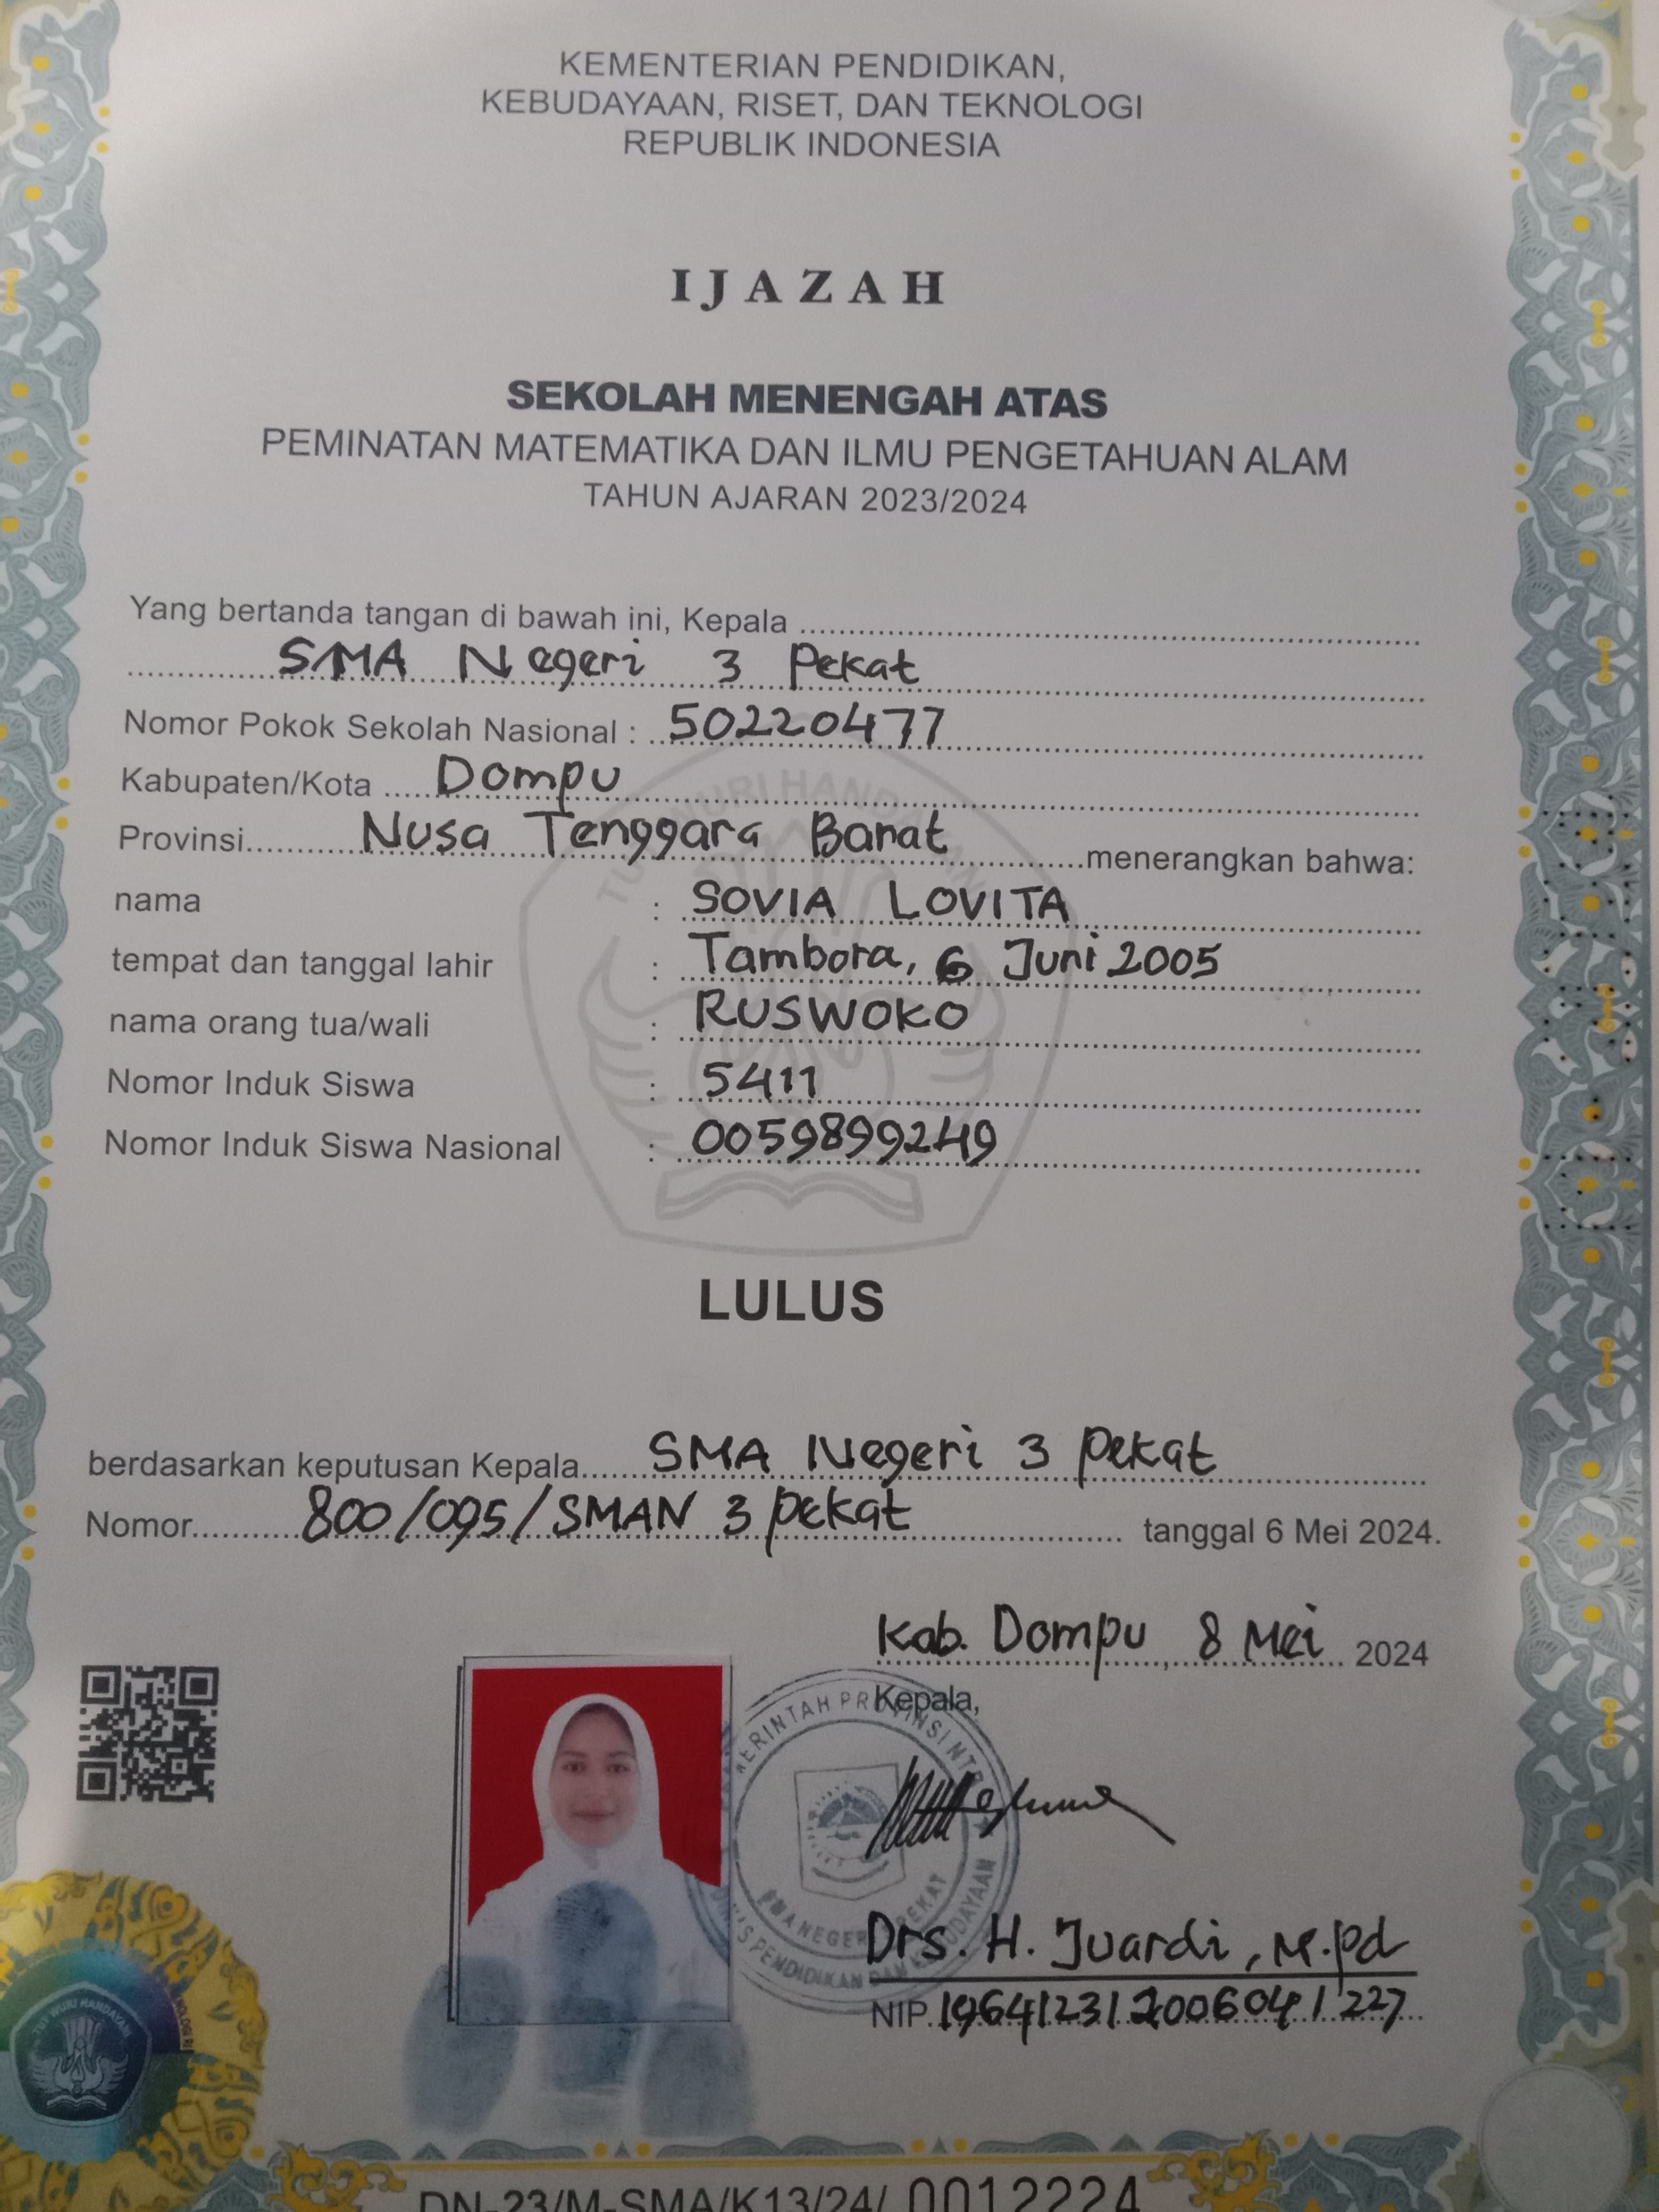 KEMENTERIAN PENDIDIKAN,
KEBUDAYAAN, RISET, DAN TEKNOLOGI
REPUBLIK INDONESIA
IJAZAH
SEKOLAH MENENGAH ATAS
PEMINATAN MATEMATIKA DAN ILMU PENGETAHUAN ALAM
TAHUN AJARAN 2023/2024
Yang bertanda tangan di bawah ini, Kepala
SMA Negeri 3 Pekat
Nomor Pokok Sekolah Nasional : 50220477
Kabupaten/Kota Dompu
Provinsi Nusa Tenggara Barat menerangkan bahwa:
nama : SOVIA LOVITA
tempat dan tanggal lahir : Tambora, 6 Juni 2005
nama orang tua/wali : RUSWOKO
Nomor Induk Siswa : 5411
Nomor Induk Siswa Nasional : 0059899249
LULUS
berdasarkan keputusan Kepala SMA Negeri 3 Pekat
Nomor 800/095/SMAN 3 Pekat tanggal 6 Mei 2024.
Kab. Dompu, 8 Mei 2024
Kepala,
Drs. H. Juardi, M.Pd
NIP. 196412312006041227
TUT WURI HANDAYANI
DN-23/M-SMA/K13/24/ 0012224